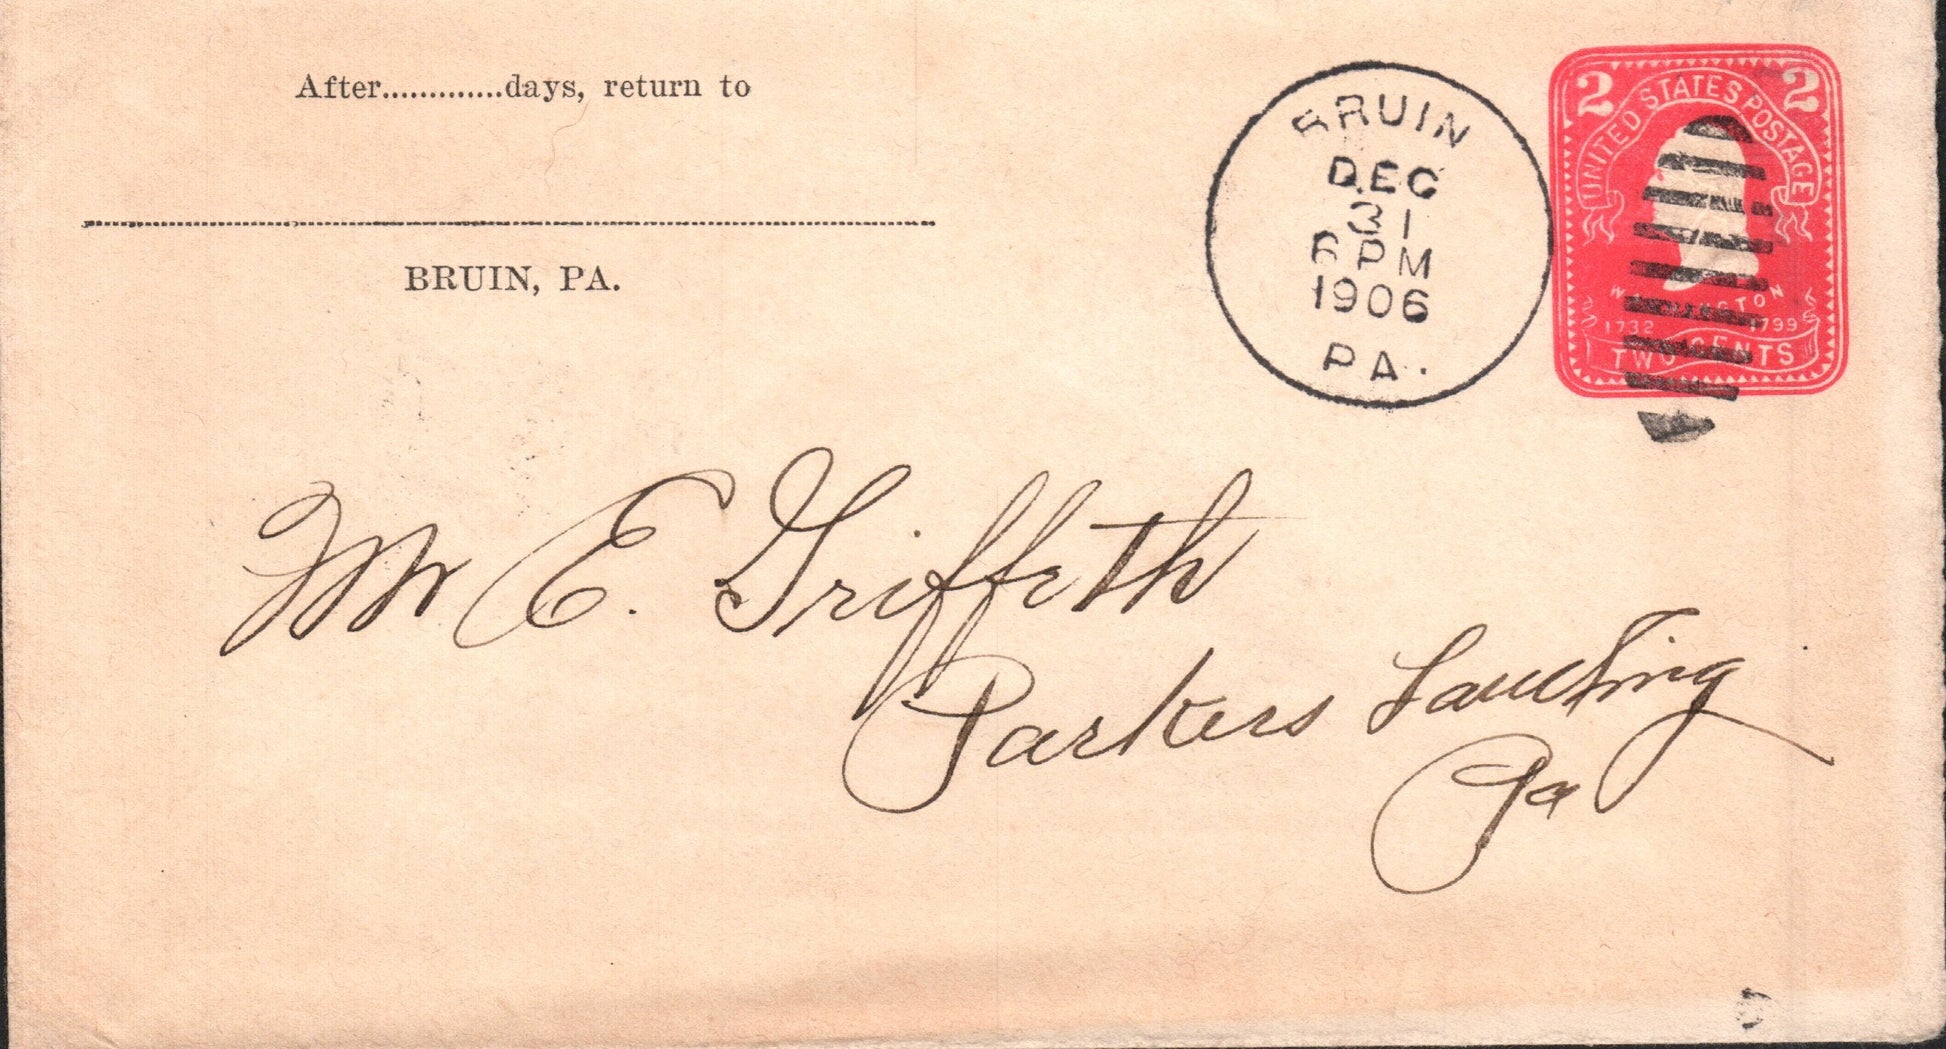 After.............days, return to
BRUIN, PA.
BRUIN
DEC
31
6 PM
1906
PA.
2 2
UNITED STATES POSTAGE
WASHINGTON
1732 1799
TWO CENTS
Mr E. Griffeth
Parkers Landing
Pa